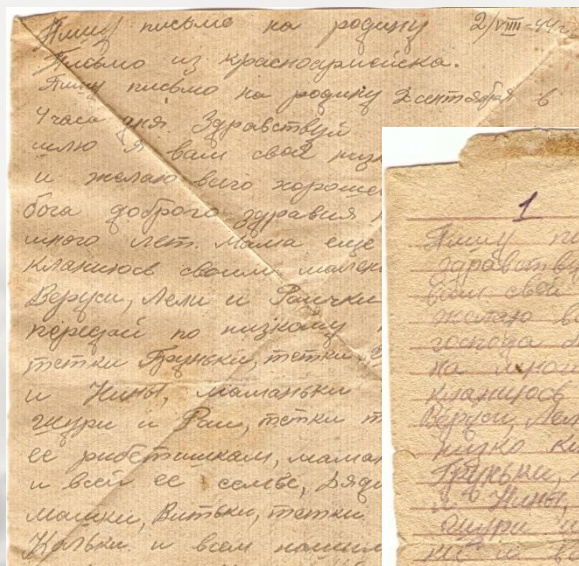 Пишу письмо на родину 2/VIII-44 г.
Письмо из красноармейска.
Пишу письмо на родину 2 сентября в
4 часа дня. Здравствуй
шлю я вам свой низк
и желаю всего хороше
бога доброго здравия
много лет. Мама еще
кланиюсь своим мален
Веруси, Лели и Раички
передай по низкому
тетки Груньки, тетки
и Нины, маманьки
и Раи, тетки
ее рибетишкам, мама
и всей ее семье, Дяди
машки, Витьки, тетки
Кольки и всем нашим
1
Пишу пи
здравству
вам свой
желаю в
господа
на много
кланиюсь
Веруси, Лел
низко кл
Груньки,
и Нины,
и